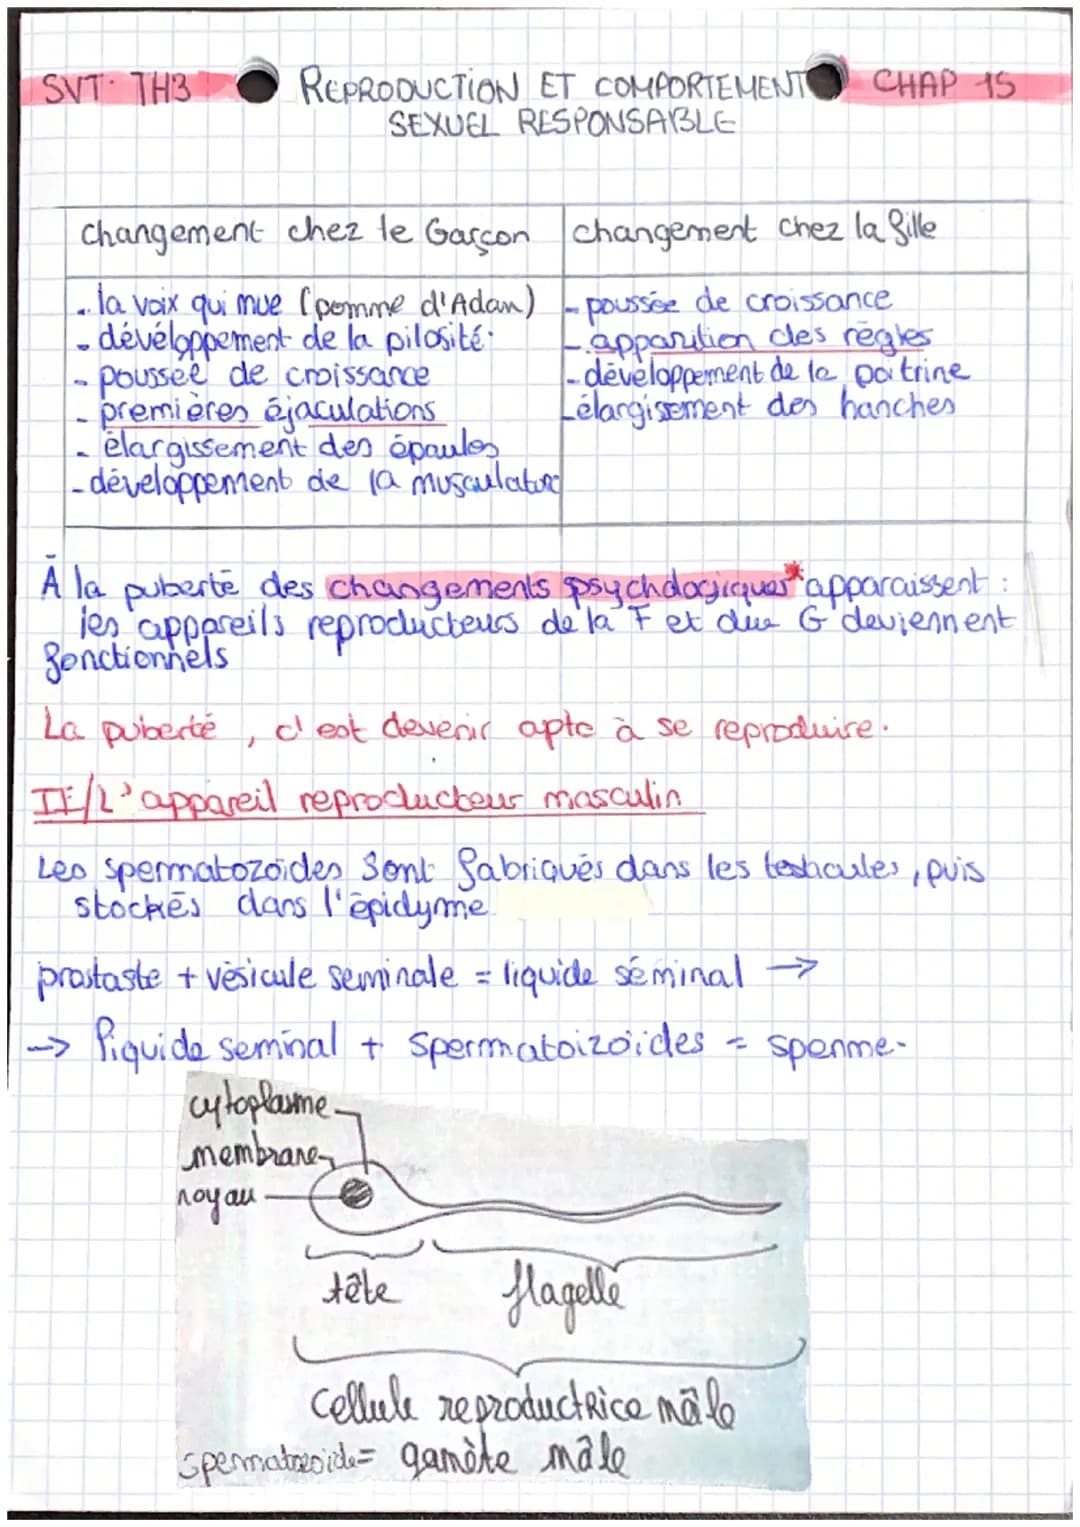 SVT: TH3 REPRODUCTION ET COMPORTEMENT CHAP 15
SEXUEL RESPONSABLE
changement chez le Garçon
- la voix qui mue (pomme d'Adam)
- dévéloppement de la pilosité.
- poussée de croissance
- premières éjaculations
- élargissement des épaules
- développement de la musculature
changement chez la fille
- poussée de croissance
- apparition des règles
- développement de la poitrine
- élargisement des hanches
À la puberté des changements psychologiques* apparaissent :
les appareils reproducteurs de la F et du G deviennent
fonctionnels
La puberté, c'est devenir apte à se reproduire.
II/L'appareil reproducteur masculin
Les spermatozoïdes sont fabriqués dans les testicules, puis
stockés dans l'épidyme
prostaste + vésicule seminale = liquide séminal →
→ liquide seminal + spermatoizoïdes = sperme.
cytoplasme
membrane
noyau
tête flagelle
cellule reproductrice mâle
spermatozoide = gamète mâle